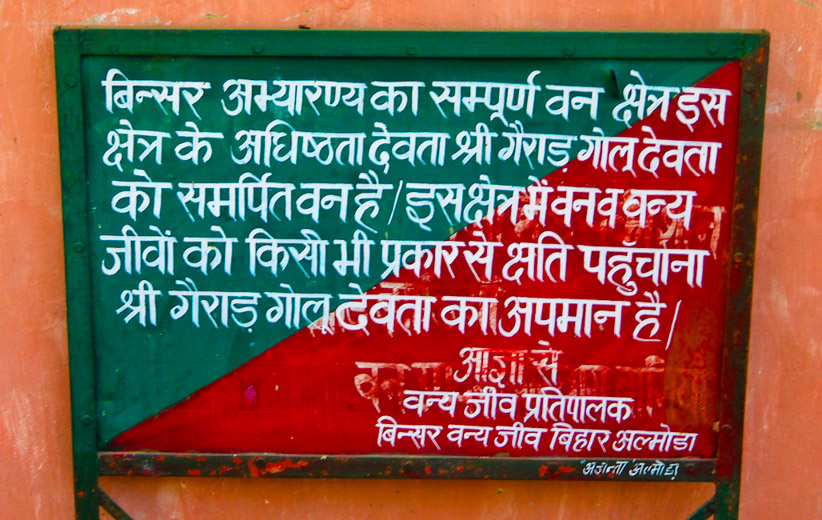 बिन्सर अभ्यारण्य का सम्पूर्ण वन क्षेत्र इस
क्षेत्र के अधिष्ठता देवता श्री गैराड़ गोलू देवता
को समर्पित वन है/इस क्षेत्र में वन व वन्य
जीवों को किसी भी प्रकार से क्षति पहुँचाना
श्री गैराड़ गोलू देवता का अपमान है/
आज्ञा से
वन्य जीव प्रतिपालक
बिन्सर वन्य जीव बिहार अल्मोडा
"अजन्ता" अल्मोडा